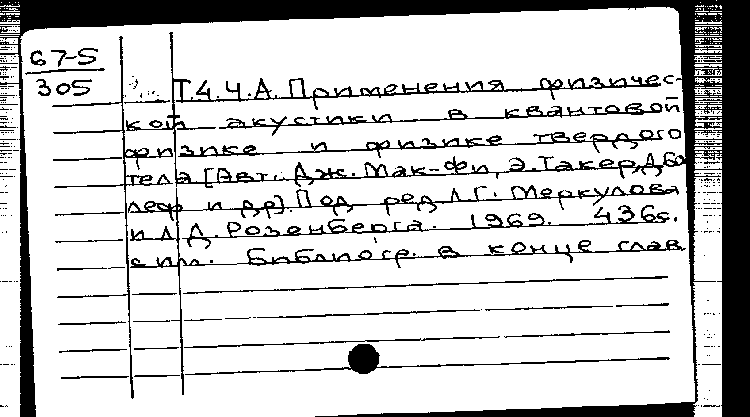 67-5
305
Т.4.Ч.А. Применения физичес-
кой акустики в квантовой
физике и физике твердого
тела [Авт.: Дж. Мак-Фи, Э. Такер, Д. Бо
леф и др]. Под ред Л.Г. Меркулова
и Л.Д. Розенберга. 1969. 436с.
с ил. Библиогр. в конце глав